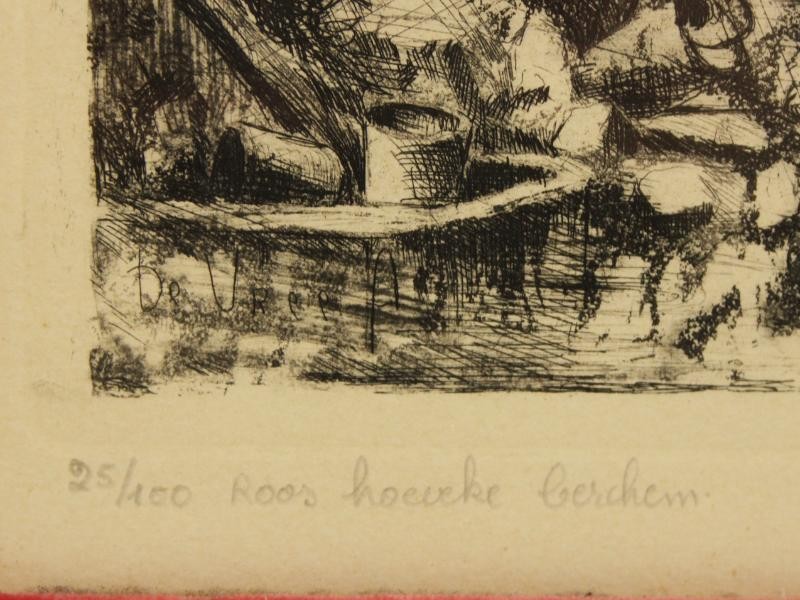 De Vree
25/100 Roos hoeveke Berchem.